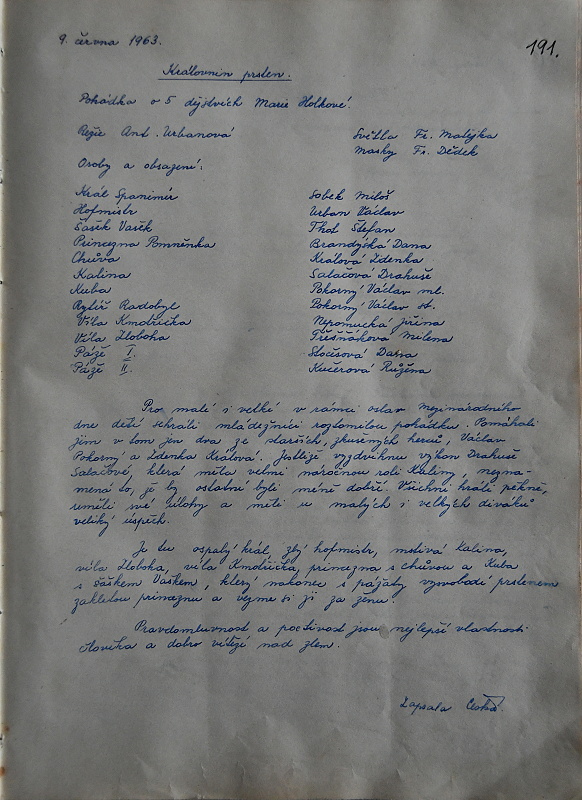 9. června 1963.
191.
Královnin prsten.
Pohádka o 5 dějstvích Marie Holkové.
Režie Ant. Urbanová
Světla Fr. Matějka
Masky Fr. Dědek
Osoby a obsazení:
Král Spanimír Sobek Miloš
Hofmistr Urban Václav
Šašek Vašek Thot Štefan
Princezna Pomněnka Brandýská Dana
Chůva Králová Zdenka
Kalina Salačová Drahuše
Kuba Pokorný Václav ml.
Rytíř Radobyl Pokorný Václav st.
Víla Kmotřička Nepomucká Jiřina
Víla Zloboha Třešňáková Milena
Páže I. Stočesová Dana
Páže II. Kučerová Růžena
Pro malé i velké v rámci oslav Mezinárodního
dne dětí sehráli mládežníci roztomilou pohádku. Pomáhali
jim v tom jen dva ze starších, zkušených herců, Václav
Pokorný a Zdenka Králová. Jestliže vyzdvihnu výkon Drahuše
Salačové, která měla velmi náročnou roli Kaliny, nezna-
mená to, že by ostatní byli méně dobří. Všichni hráli pěkně,
uměli své úlohy a měli u malých i velkých diváků
veliký úspěch.
Je tu ospalý král, zlý hofmistr, mstivá Kalina,
víla Zloboha, víla Kmotřička, princezna s chůvou a Kuba
s šaškem Vaškem, který nakonec s pážaty vysvobodí prstenem
zakletou princeznu a vezme si ji za ženu.
Pravdomluvnost a poctivost jsou nejlepší vlastnosti
člověka a dobro vítězí nad zlem.
Zapsala